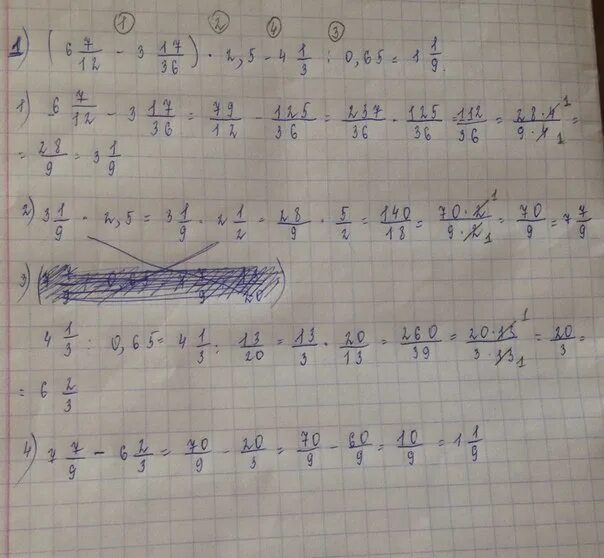 ① ② ④ ③
1) (6 7/12 - 3 17/36) · 2,5 - 4 1/3 : 0,65 = 1 1/9.
1) 6 7/12 - 3 17/36 = 79/12 - 125/36 = 237/36 - 125/36 = 112/36 = 28·4/9·4 1 1 =
= 28/9 = 3 1/9
2) 3 1/9 · 2,5 = 3 1/9 · 2 1/2 = 28/9 · 5/2 = 140/18 = 70·2/9·2 1 1 = 70/9 = 7 7/9
3)
4 1/3 : 0,65 = 4 1/3 : 13/20 = 13/3 · 20/13 = 260/39 = 20·13/3·13 1 1 = 20/3 =
= 6 2/3
4) 7 7/9 - 6 2/3 = 70/9 - 20/3 = 70/9 - 60/9 = 10/9 = 1 1/9